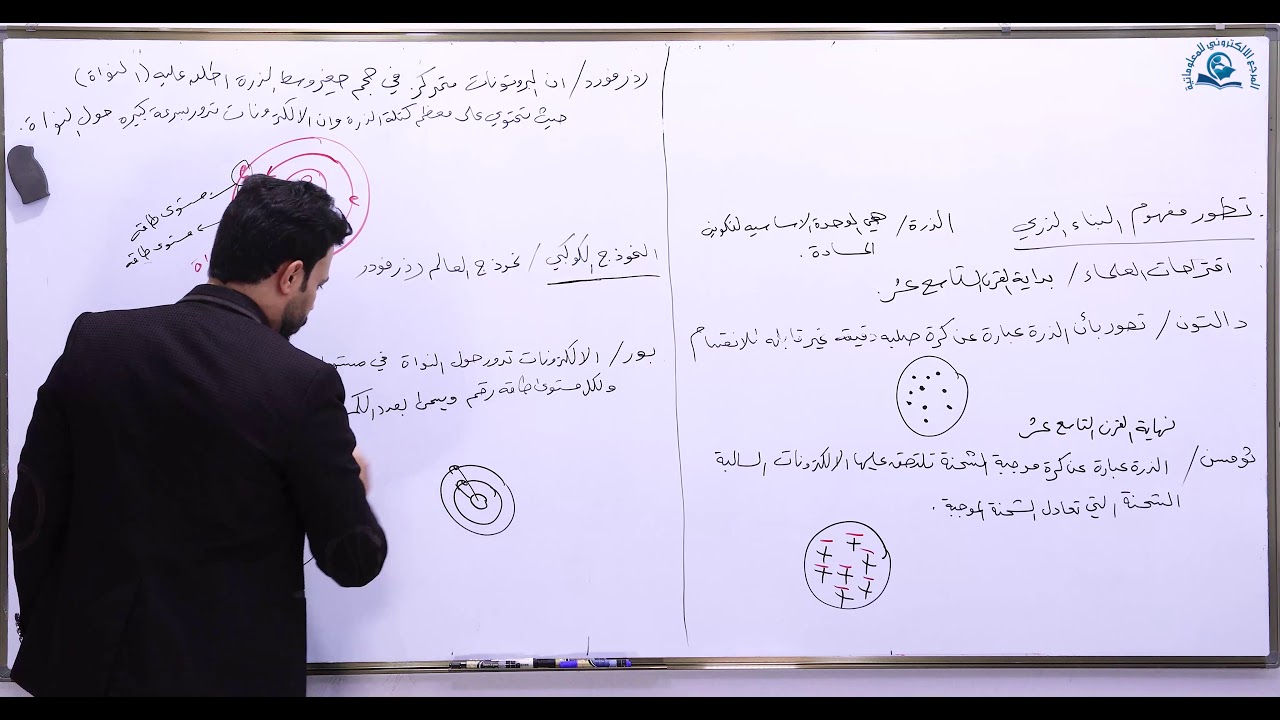 المرجع الالكتروني للمعلوماتية
تطور مفهوم البناء الذري
الذرة / هي الوحدة الاساسية لتكوين
المادة .
اقتراحات العلماء / بداية القرن التاسع عشر .
دالتون / تصور بأن الذرة عبارة عن كرة صلبه دقيقه غير قابله للانقسام
نهاية القرن التاسع عشر
ثومسن / الذرة عبارة عن كرة موجبة الشحنة تلتصق عليها الالكترونات السالبة
الشحنة التي تعادل الشحنة الموجبة .
رذرفورد / ان البروتونات متمركز في حجم صغير وسط الذرة اطلق عليه (النواة)
حيث تحتوي على معظم كتلة الذرة وان الالكترونات تدور بسرعة كبيره حول النواة .
مستوى طاقة
مستوى طاقة
النموذج الكوكبي / نموذج العالم رذرفورد
بور / الالكترونات تدور حول النواة في
ولكل مستوى طاقه رقم ويسمى بعدد